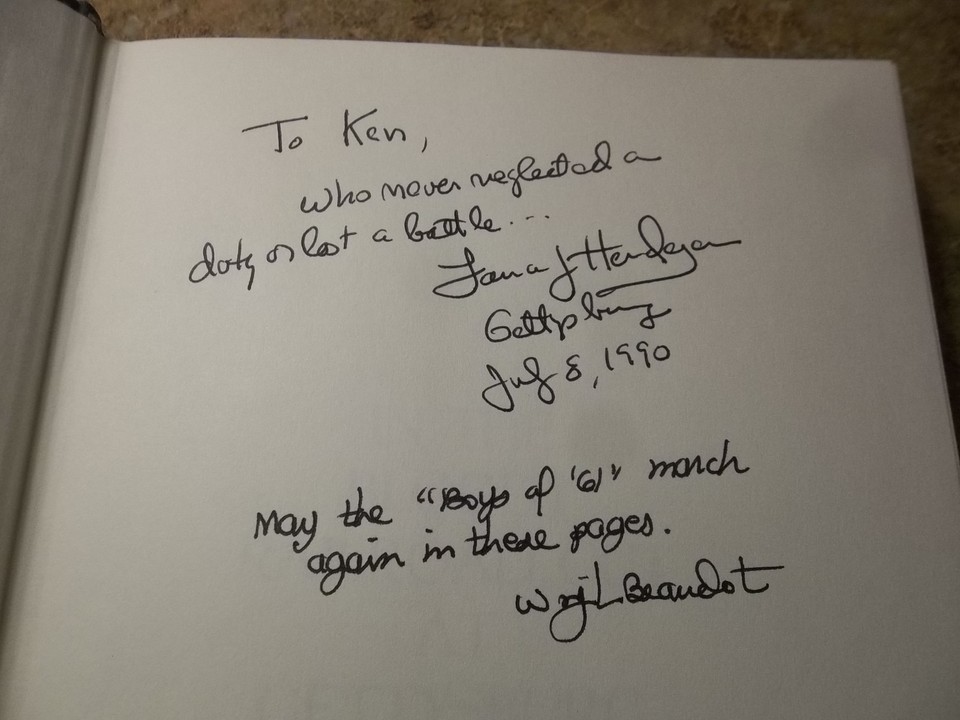 To Ken,
who never neglected a
duty or lost a battle...
Lance J Herdegen
Gettysburg
July 8, 1990
May the "Boys of '61" march
again in these pages.
Wm J K Beaudot